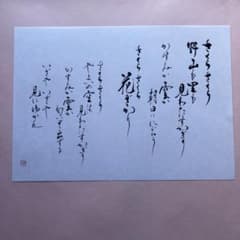 さくらさくら
野山も里も
見わたすかぎり
かすみか雲か
朝日ににほふ
さくらさくら
花ざかり
さくらさくら
やよひの空は
見わたすかぎり
かすみか雲か
匂ひぞ出づる
いざやいざや
見にゆかん